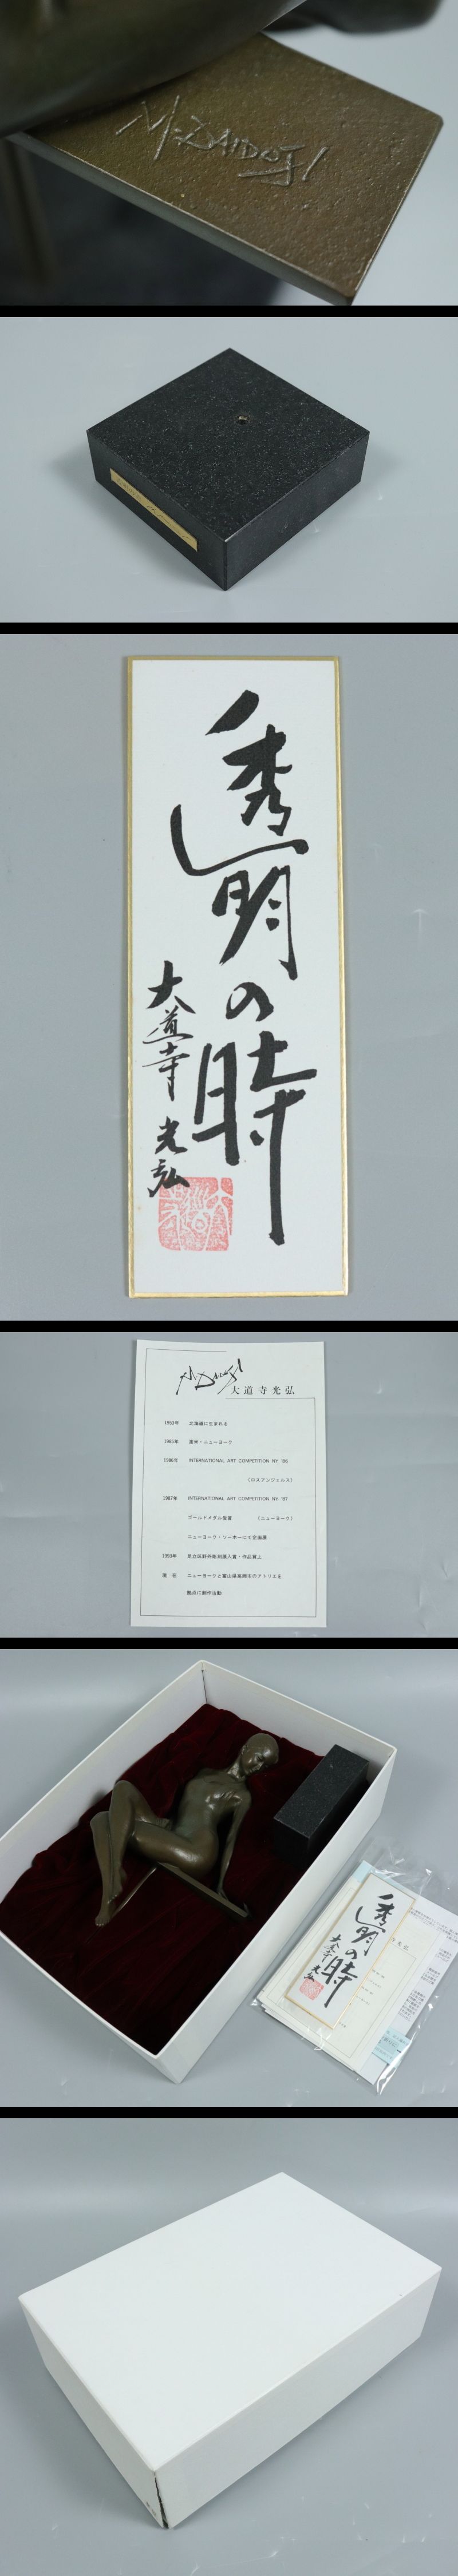 M. DAIDOJI
透明の時
大道寺光弘
大道寺光弘
1951年 北海道に生まれる
1985年 渡米・ニューヨーク
1986年 INTERNATIONAL ART COMPETITION NY '86
(ロスアンジェルス)
1987年 INTERNATIONAL ART COMPETITION NY '87
ゴールドメダル受賞 (ニューヨーク)
ニューヨーク・ソーホーにて企画展
1993年 足立区野外彫刻展入賞・作品買上
現在 ニューヨークと富山県高岡市のアトリエを
拠点に創作活動
透明の時
大道寺光弘